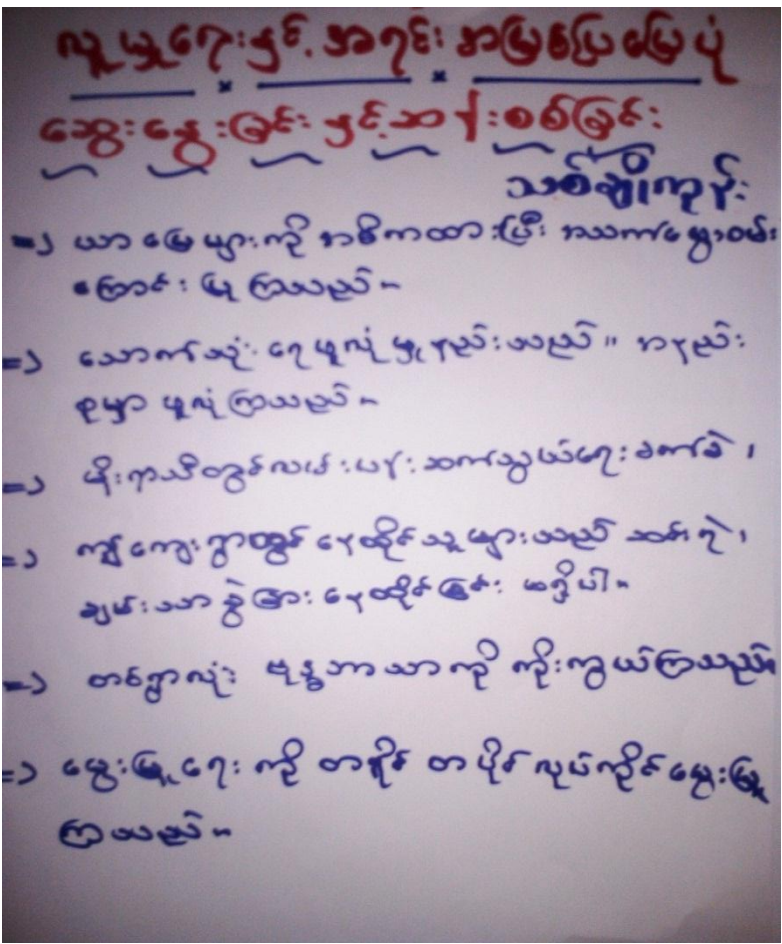 လူမှုရေးနှင့် အရင်းအမြစ်ပြမြေပုံ
ဆွေးနွေးခြင်းနှင့်ဆန်းစစ်ခြင်း
သစ်ချိုကုန်း
⇒ ယာမြေများကို အဓိကထားပြီး အသက်မွေးဝမ်း
ကြောင်းပြုကြသည်။
⇒ သောက်သုံးရေဖူလုံမှုနည်းသည်။ အနည်း
စုမှာ ဖူလုံကြသည်။
⇒ မိုးရာသီတွင်လမ်းပန်းဆက်သွယ်ရေးခက်ခဲ၊
⇒ ကျေးရွာတွင် နေထိုင်သူများသည် ဆင်းရဲ၊
ချမ်းသာခွဲခြားနေထိုင်ခြင်း မရှိပါ။
⇒ တစ်ရွာလုံး ဗုဒ္ဓဘာသာကို ကိုးကွယ်ကြသည်။
⇒ မွေးမြူရေးကို တနိုင် တပိုင် လုပ်ကိုင်မွေးမြူ
ကြသည်။